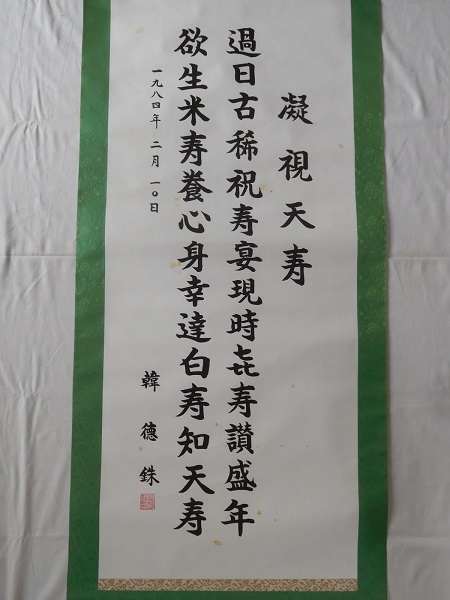 凝視天寿
過日古稀祝寿宴現時㐂寿讃盛年
欲生米寿養心身幸達白寿知天寿
一九八四年 二月 一〇日
韓德銖